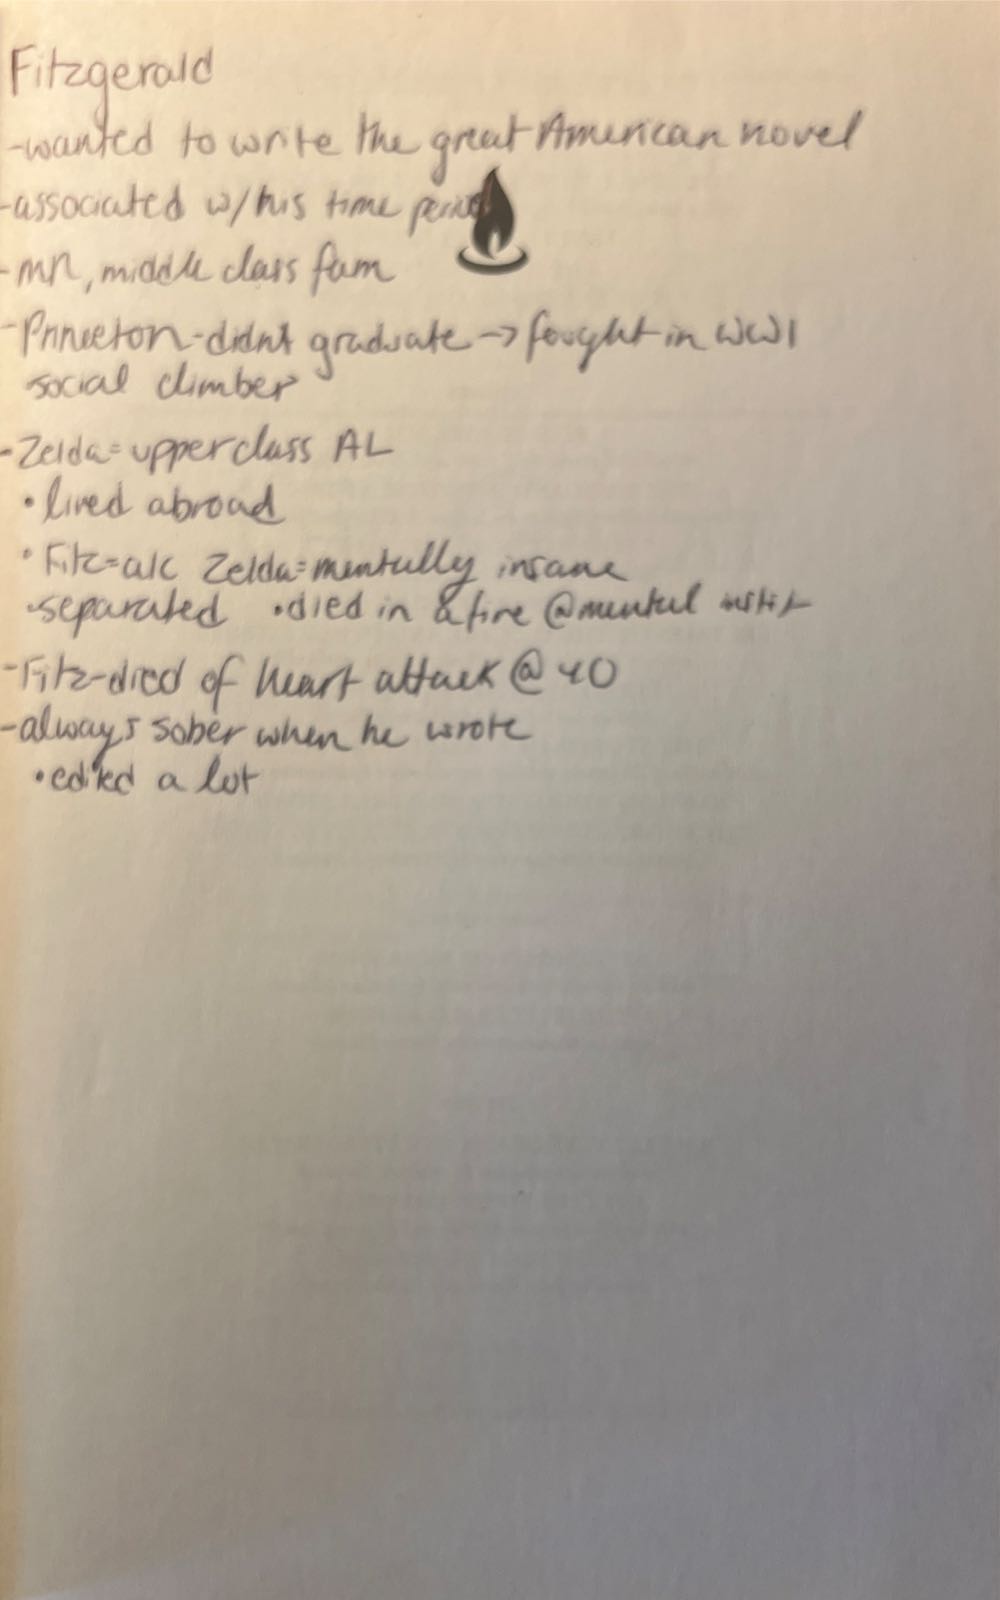 Fitzgerald
-wanted to write the great American novel
-associated w/his time period
-MN, middle class fam
-Princeton-didnt graduate → fought in WWI
social climber
-Zelda=upperclass AL
•lived abroad
•Fitz=alc Zelda=mentally insane
•separated •died in a fire @mental instit
-Fitz-died of heart attack @ 40
-always sober when he wrote
•edited a lot